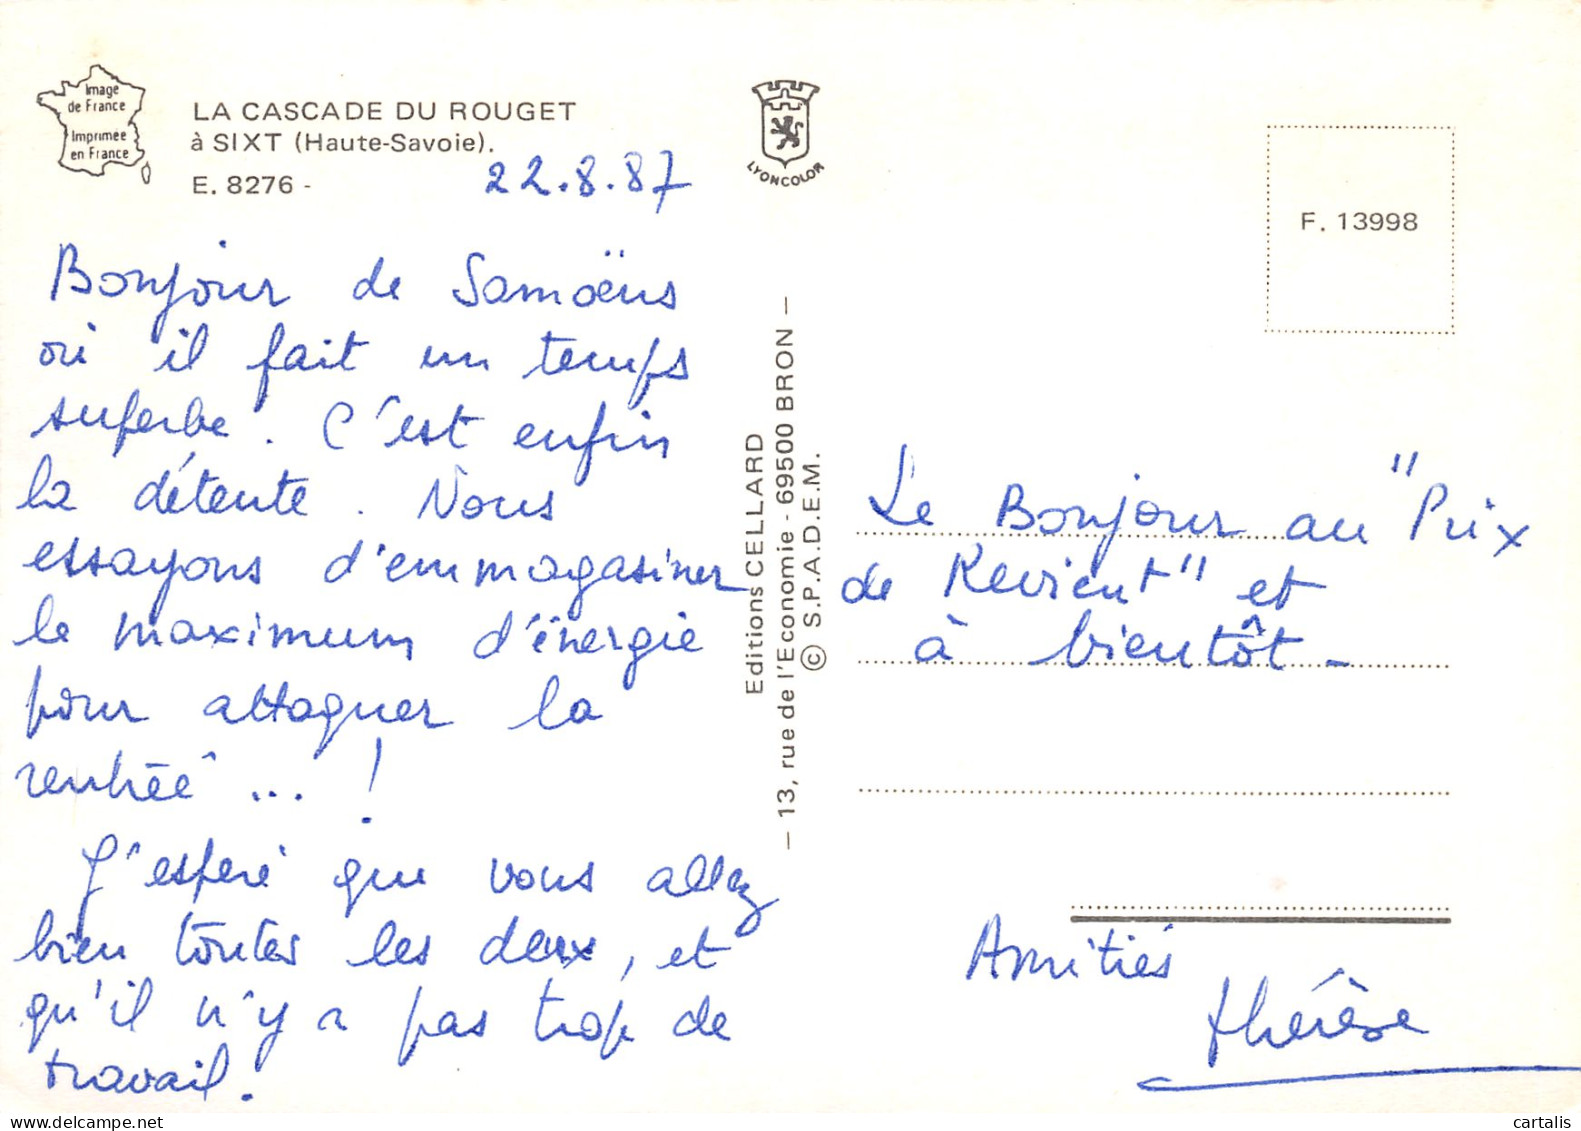 Image
de France
Imprimée
en France
LA CASCADE DU ROUGET
à SIXT (Haute-Savoie).
E. 8276 -
22.8.87
Bonjour de Samoëns
où il fait un temps
superbe. C'est enfin
la détente. Nous
essayons d'emmagasiner
le maximum d'énergie
pour attaquer la
rentrée ... !
J'espère que vous allez
bien toutes les deux, et
qu'il n'y a pas trop de
travail.
LYONCOLOR
Editions CELLARD
— 13, rue de l'Economie - 69500 BRON —
© S.P.A.D.E.M.
F. 13998
Le Bonjour au "Prix
de Revient" et
à bientôt -
Amitiés
Thérèse
cartalis